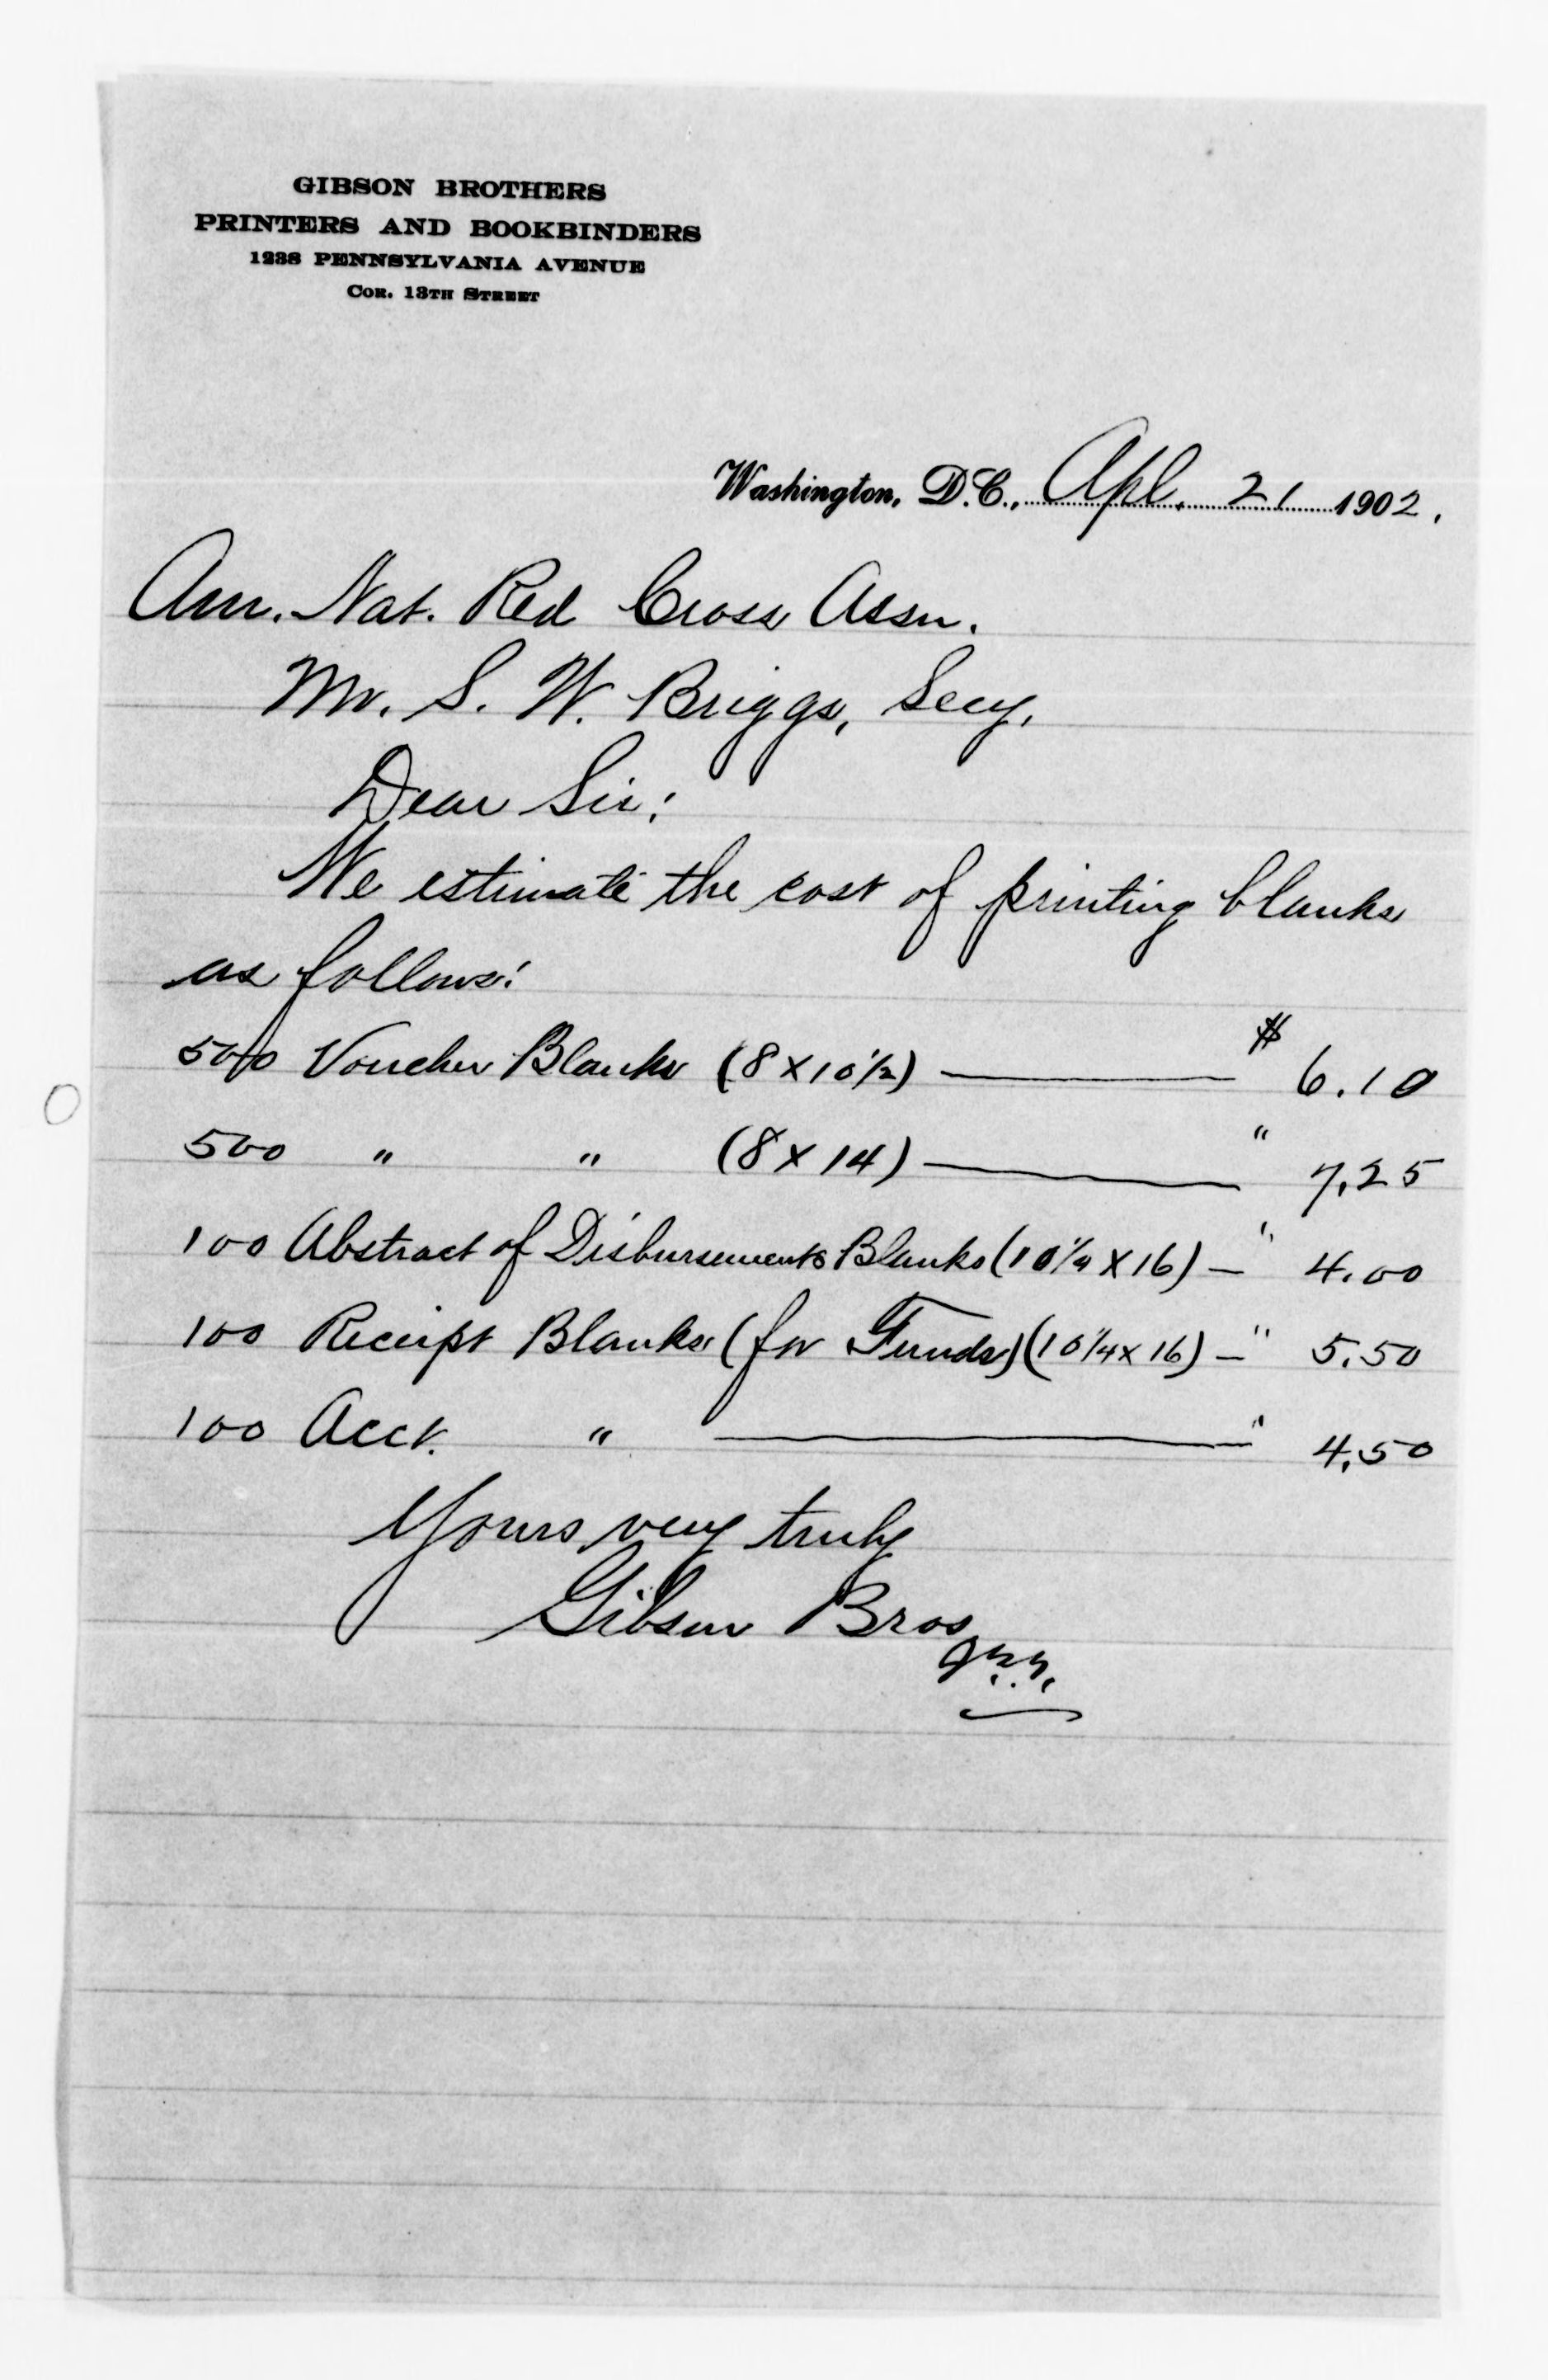 GIBSON BROTHERS
PRINTERS AND BOOKBINDERS
1238 PENNSYLVANIA AVENUE
COR. 13TH STREET
Washington, D.C., Apl. 21 1902.
Am. Nat. Red Cross Assn.
Mr. S. W. Briggs, Secy.
Dear Sir:
We estimate the cost of printing blanks
as follows:
500 Voucher Blanks (8 X 10½) — $ 6.10
500 " " (8 X 14) — " 7.25
100 Abstract of Disbursements Blanks (10¼ X 16) — " 4.00
100 Receipt Blanks (for Funds) (10¼ x 16) — " 5.50
100 Acct. " — " 4.50
Yours very truly
Gibson Bros